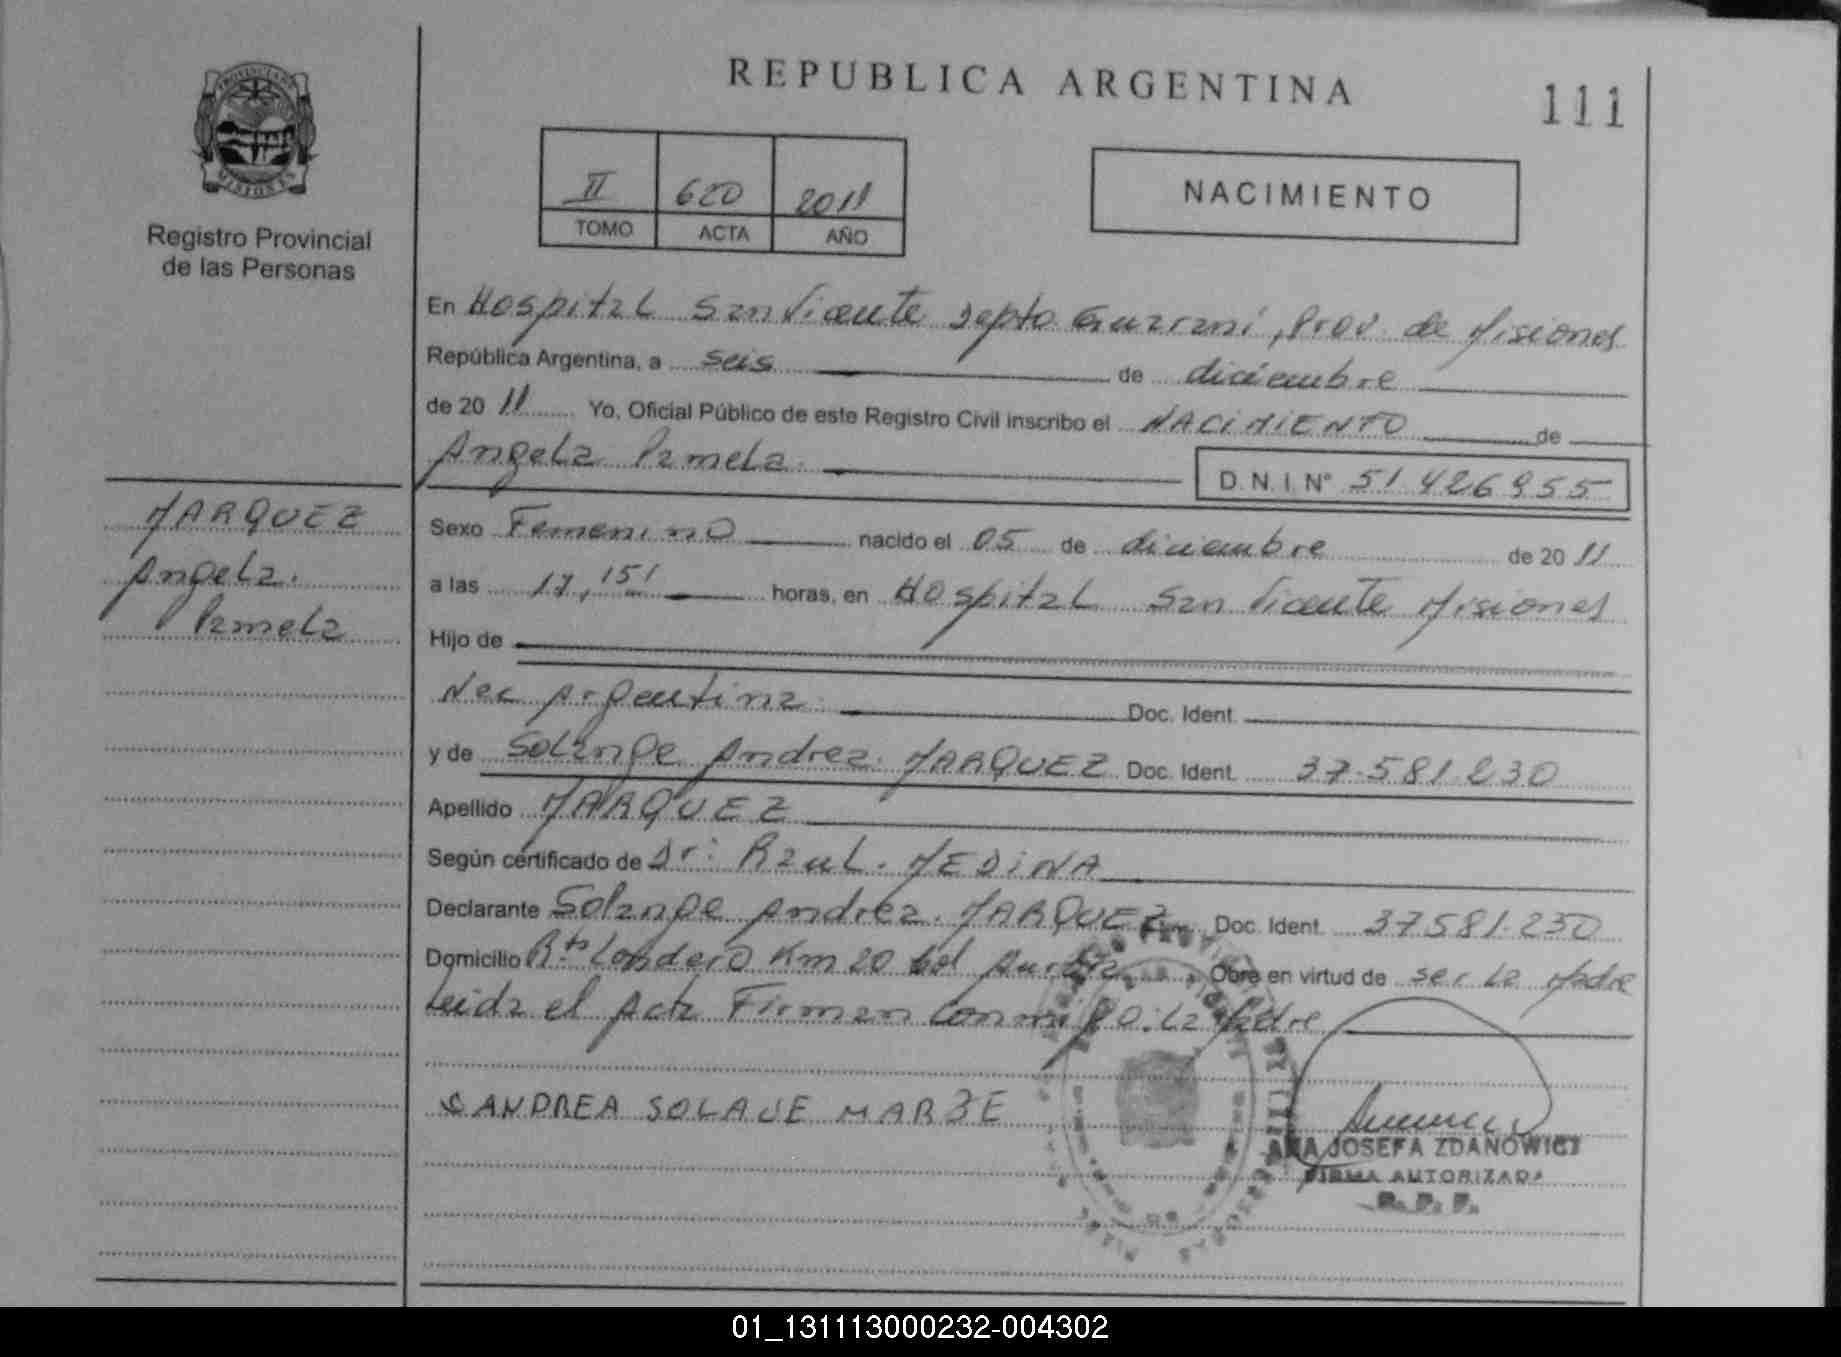 REPUBLICA ARGENTINA
111
PROVINCIA DE
MISIONES
Registro Provincial
de las Personas
II 620 2011
TOMO ACTA AÑO
NACIMIENTO
En Hospital San Vicente Depto Guarani, Prov. de Misiones
República Argentina, a seis de diciembre
de 2011 Yo, Oficial Público de este Registro Civil inscribo el NACIMIENTO de
Angela Pamela.
D.N.I. N° 51.426.955
MARQUEZ
Angela.
Pamela
Sexo Femenino nacido el 05 de diciembre de 2011
a las 17,15 horas, en Hospital San Vicente Misiones
Hijo de
Nac Argentina. Doc. Ident.
y de Solange Andrea. MARQUEZ Doc. Ident. 37.581.230
Apellido MARQUEZ
Según certificado de Dr: Raul. MEDINA
Declarante Solange Andrea. MARQUEZ Doc. Ident. 37581.230
Domicilio Km 20 Obre en virtud de ser la Madre
Leida el Acta Firman conmigo: La Madre
ANDREA SOLAJE MAR
ANA JOSEFA ZDANOWICZ
FIRMA AUTORIZADA
R. P. P.
01_131113000232-004302